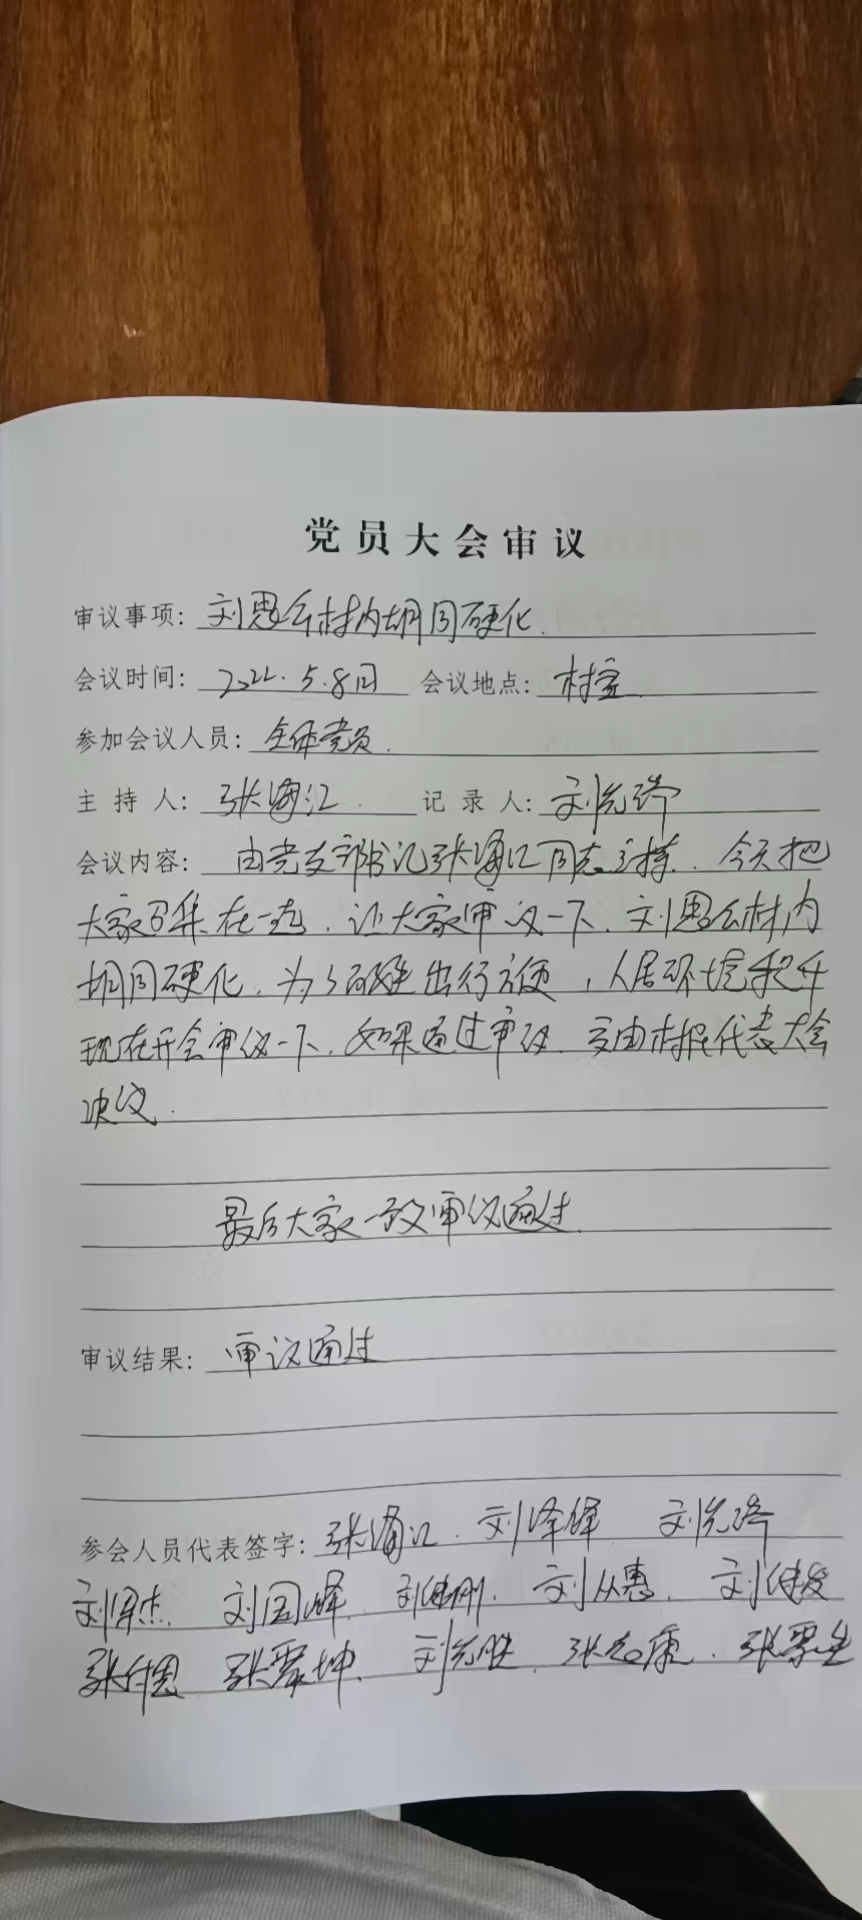 党员大会审议
审议事项：刘恩公村内胡同硬化.
会议时间：2022.5.8日 会议地点：村室
参加会议人员：全体党员.
主持人：张海江. 记录人：刘先
会议内容：由党支部书记张海江同志主持. 今天把
大家召集在一起, 让大家审议一下, 刘恩公村内
胡同硬化, 为了 出行方便, 人居环境
现在开会审议一下, 如果通过审议, 交由村民代表大会
决议.
最后大家一致审议通过.
审议结果：审议通过
参会人员代表签字：张海江. 刘泽 刘先
刘 杰. 刘国峰. 刘 刚. 刘从惠. 刘
张 坤. 刘先胜. 张志